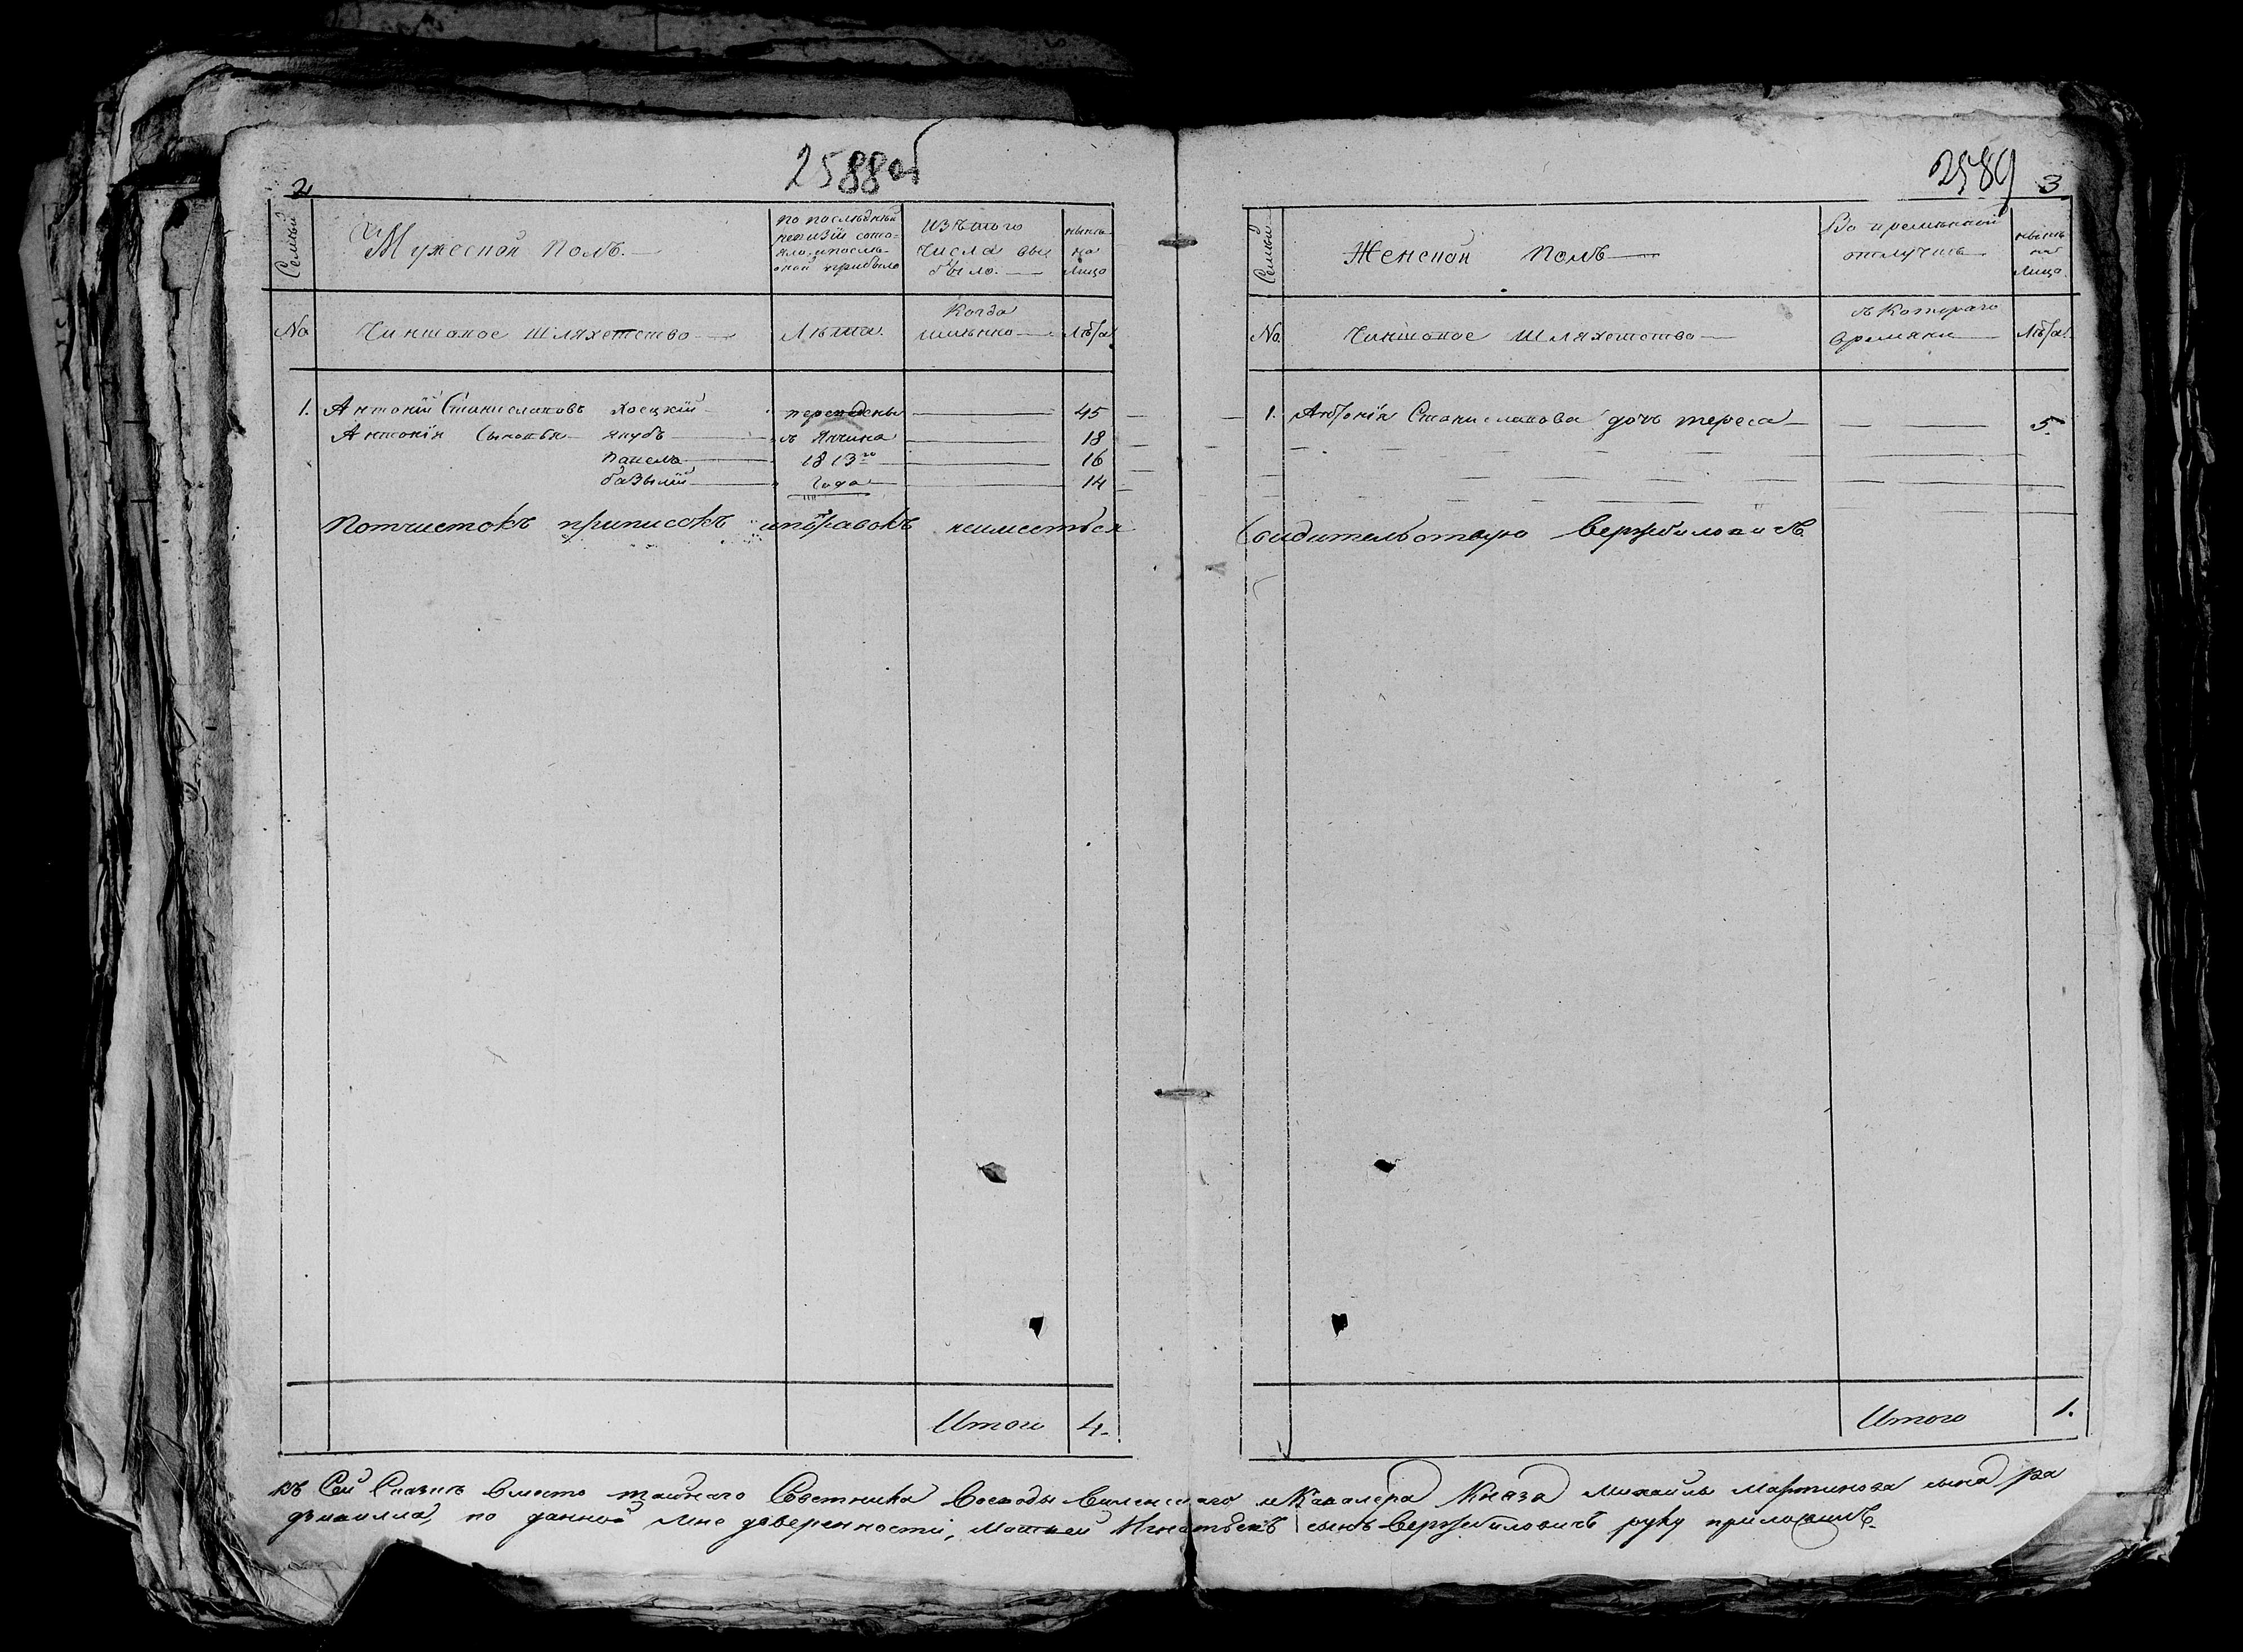 2588об
2
Семьи
Мужеской Полъ.
по последней
ревизіи состо-
яло, и после
оной прибыло
Изъ того
числа вы
было.
ныне
на
лицо
№
Чиншовое Шляхетство
Лѣта.
Когда
имянно
Лѣта
1. Антоній Станиславовъ Хоецкій переведены 45
Антонія Сыновья Якубъ съ Янчина 18
Павелъ 1813го 16
базылій года 14
Потчистокъ приписокъ ипоправокъ неимеетъся
Итого 4.
2589
3
Семьи
Женской Полъ
Во временной
отлучкѣ
ныне
на
Лицо.
№
Чиншовое Шляхетство
съ Котораго
времяни
Лѣта.
1. Антонія Станиславова дочь тереса 5.
Свидетельствую Вержбиловичъ
Итого 1.
къ Сей Сказкѣ вместо тайнаго Советника Воеводы Виленскаго и Кавалера Князя Михайлы Мартинова сына ра
дзивилла, по данной мне доверенности, Матвей Игнатьевъ сынъ Вержбиловичъ руку приложилъ.